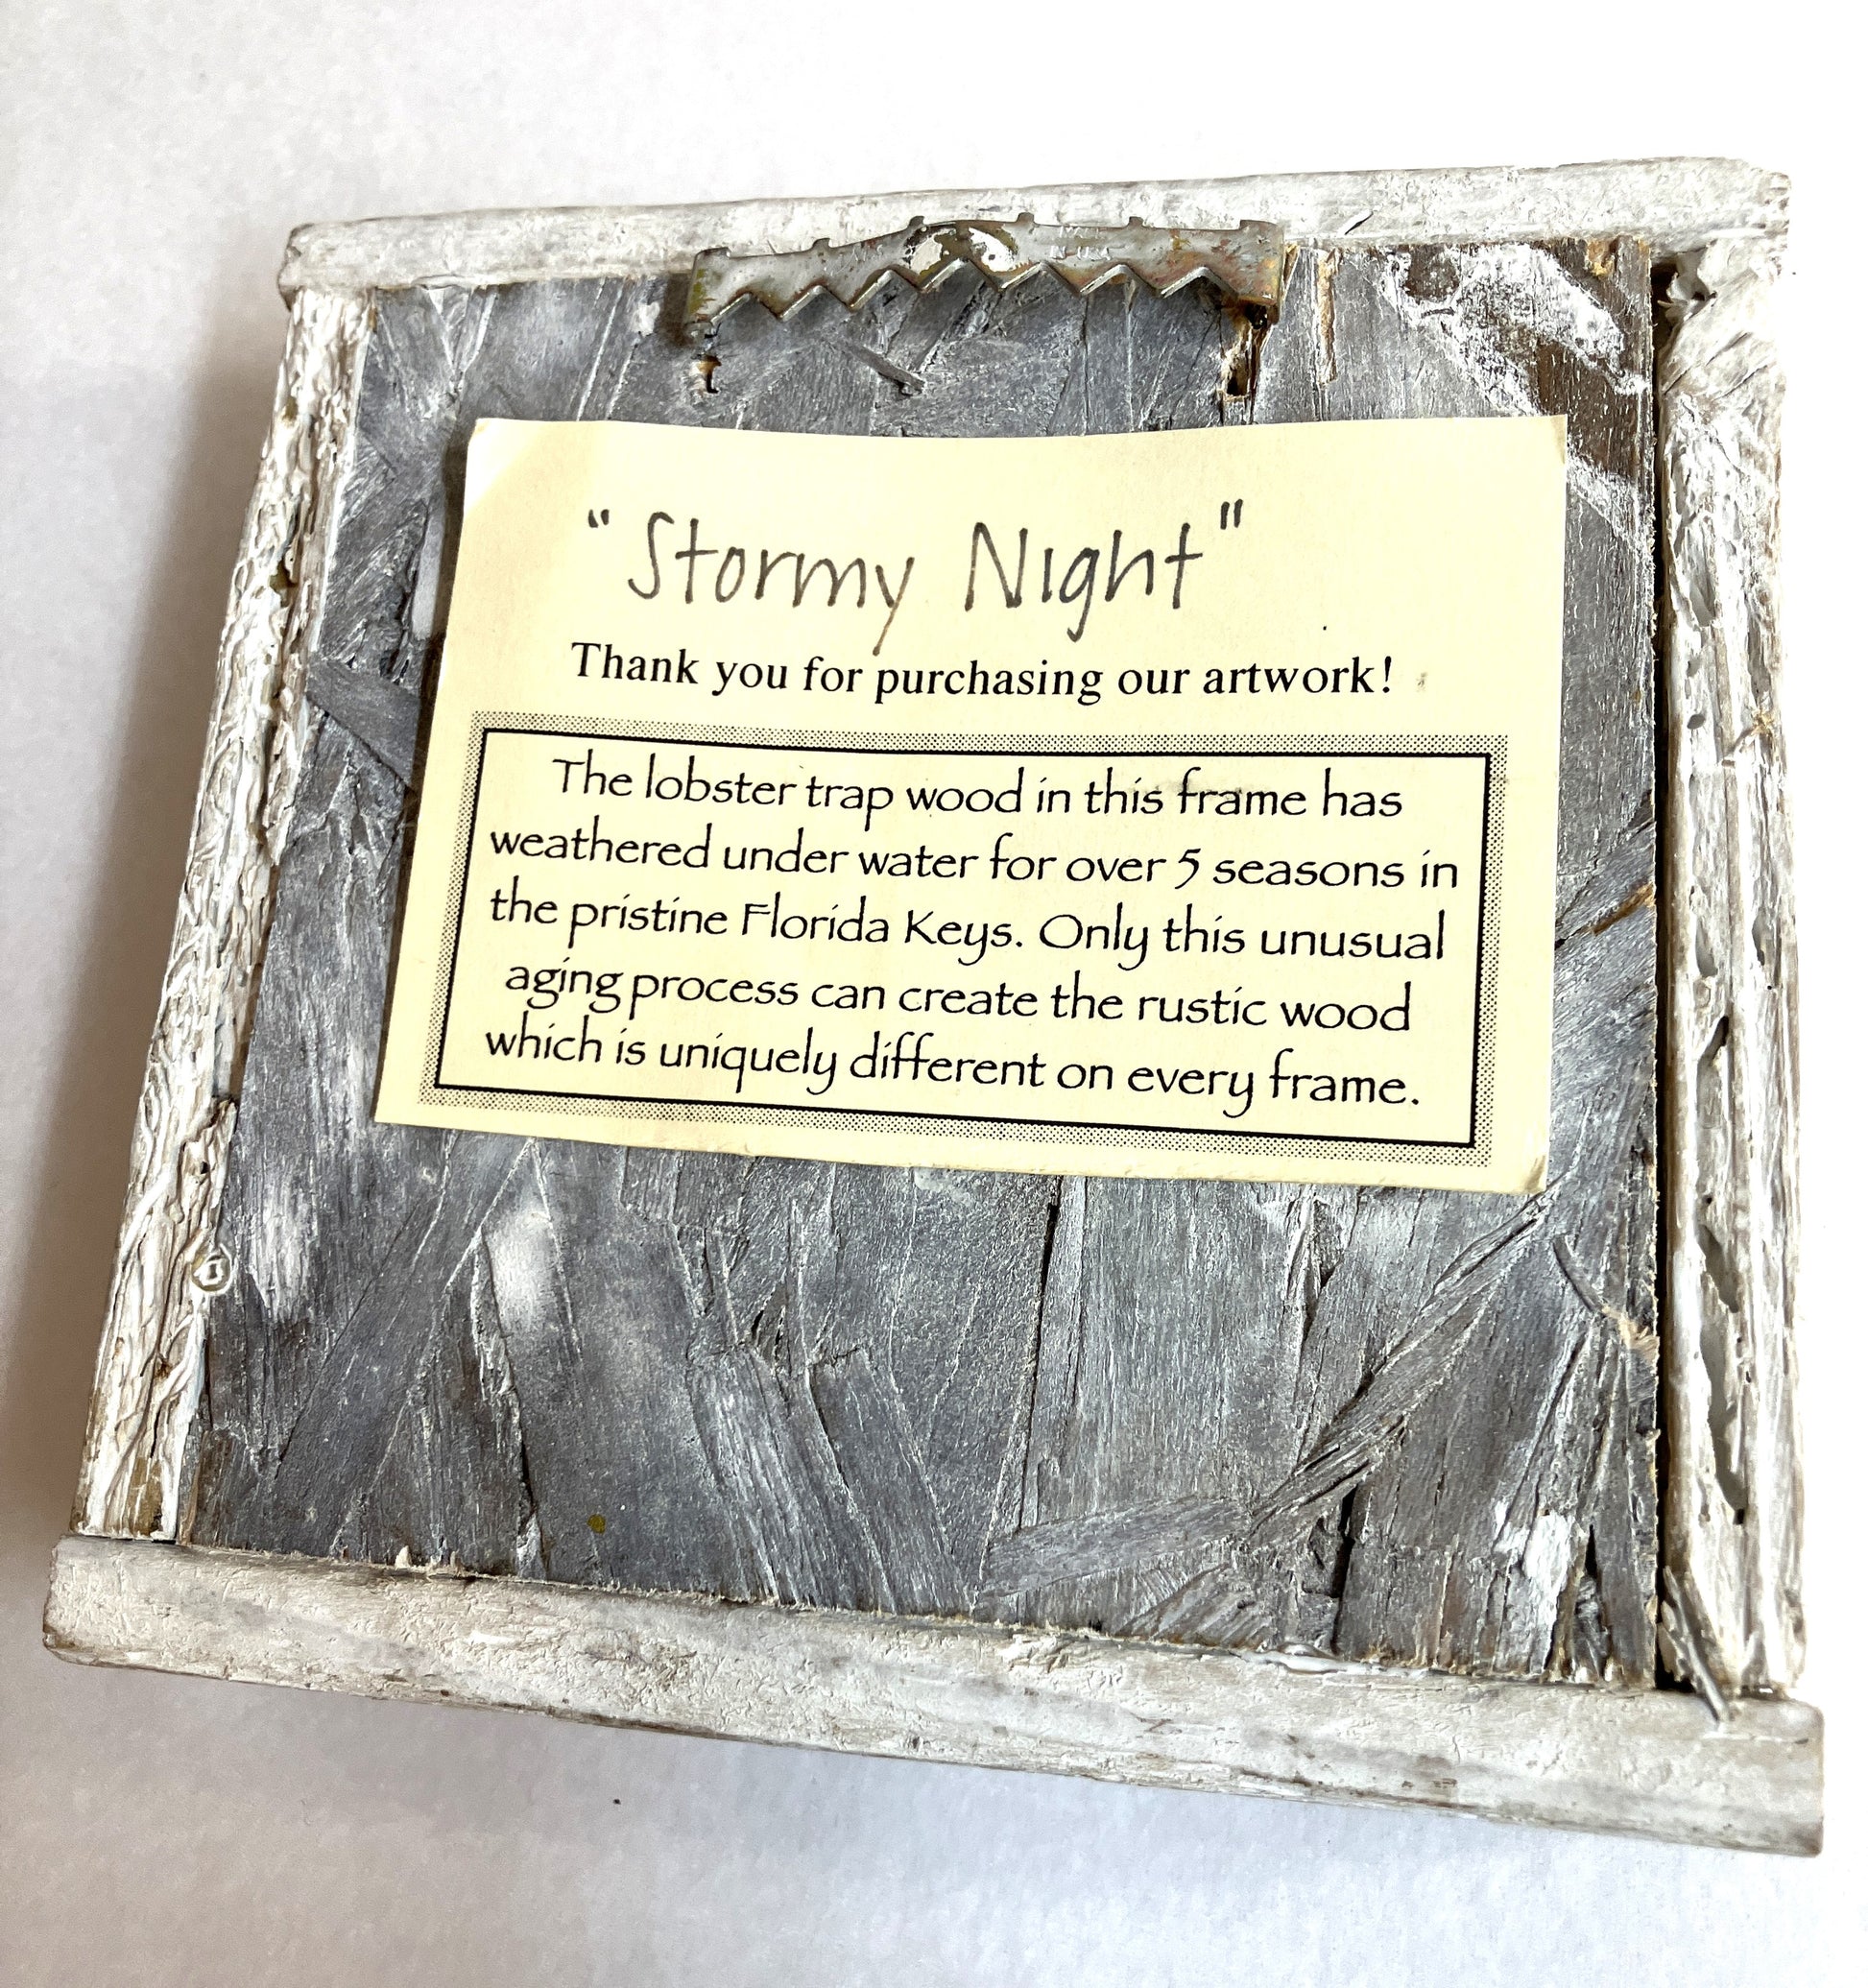 "Stormy Night"
Thank you for purchasing our artwork!
The lobster trap wood in this frame has
weathered under water for over 5 seasons in
the pristine Florida Keys. Only this unusual
aging process can create the rustic wood
which is uniquely different on every frame.